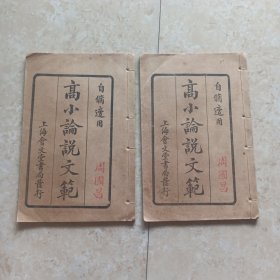 自脩適用
高小論說文範
上海會文堂書局發行
周國昌
自脩適用
高小論說文範
上海會文堂書局發行
周國昌